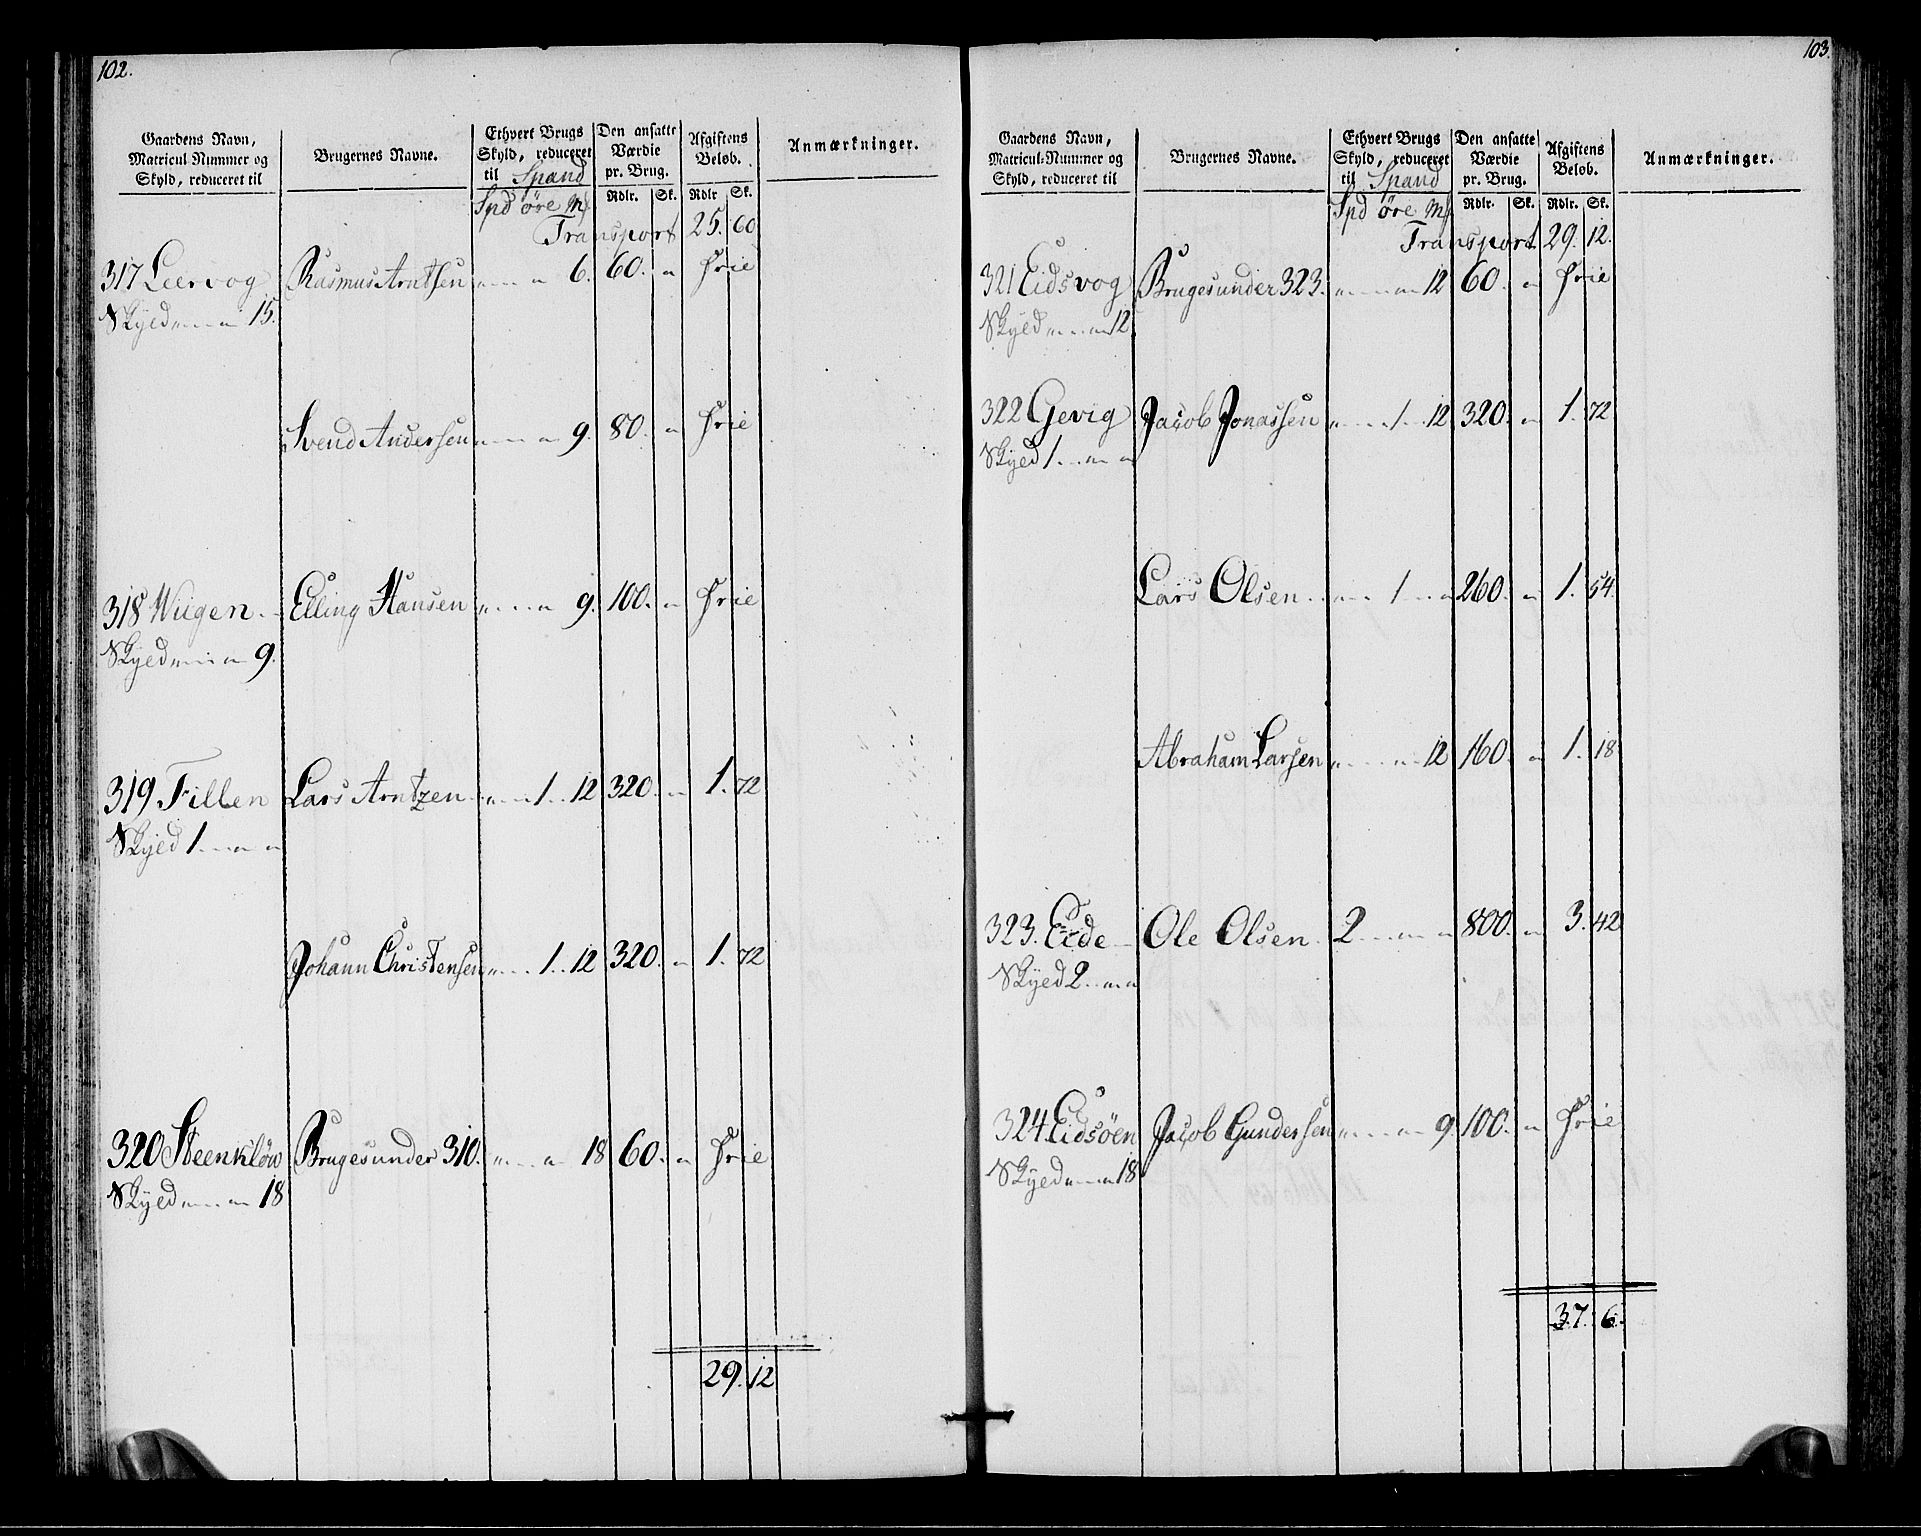 102.
Gaardens Navn, Matricul Nummer og Skyld, reduceret til
Brugernes Navne.
Ethvert Brugs Skyld, reduceret til Spand
Den ansatte Værdie pr. Brug.
Afgiftens Beløb.
Anmærkninger.
Spd øre Mk Rdlr. Sk. Rdlr Sk.
Transport 25. 60
317 Leervog Rasmus Arntsen " " 6. 60. " Frie
Skyld " " 15.
Svend Andersen " " 9. 80. " Frie
318 Wiigen Elling Hansen " " 9. 100. " Frie
Skyld " " 9.
319 Fillen Lars Arntzen " 1. 12 320. " 1. 72
Skyld 1. " "
Johann Christensen " 1. 12 320. " 1. 72
320 Steenkløw Bruges under 310. " " 18 60. " Frie
Skyld " " 18
29. 12
103.
Gaardens Navn, Matricul-Nummer og Skyld, reduceret til
Brugernes Navne.
Ethvert Brugs Skyld, reduceret til Spand
Den ansatte Værdie pr. Brug.
Afgiftens Beløb.
Anmærkninger.
Spd øre Mk Rdlr. Sk. Rdlr. Sk.
Transport 29. 12.
321 Eidsvog Bruges under 323. " " 12 60. " Frie
Skyld " " 12
322 Gevig Jacob Jonassen " 1 " 12 320. " 1. 72
Skyld 1. " "
Lars Olsen " 1 " 260. " 1. 54.
Abraham Larsen " " 12 160. " 1. 18
323. Eide Ole Olsen 2 " " 800. " 3. 42
Skyld 2 " "
324. Eidsøen Jacob Gundersen " " 9. 100. " Frie
Skyld " " 18
37. 6.